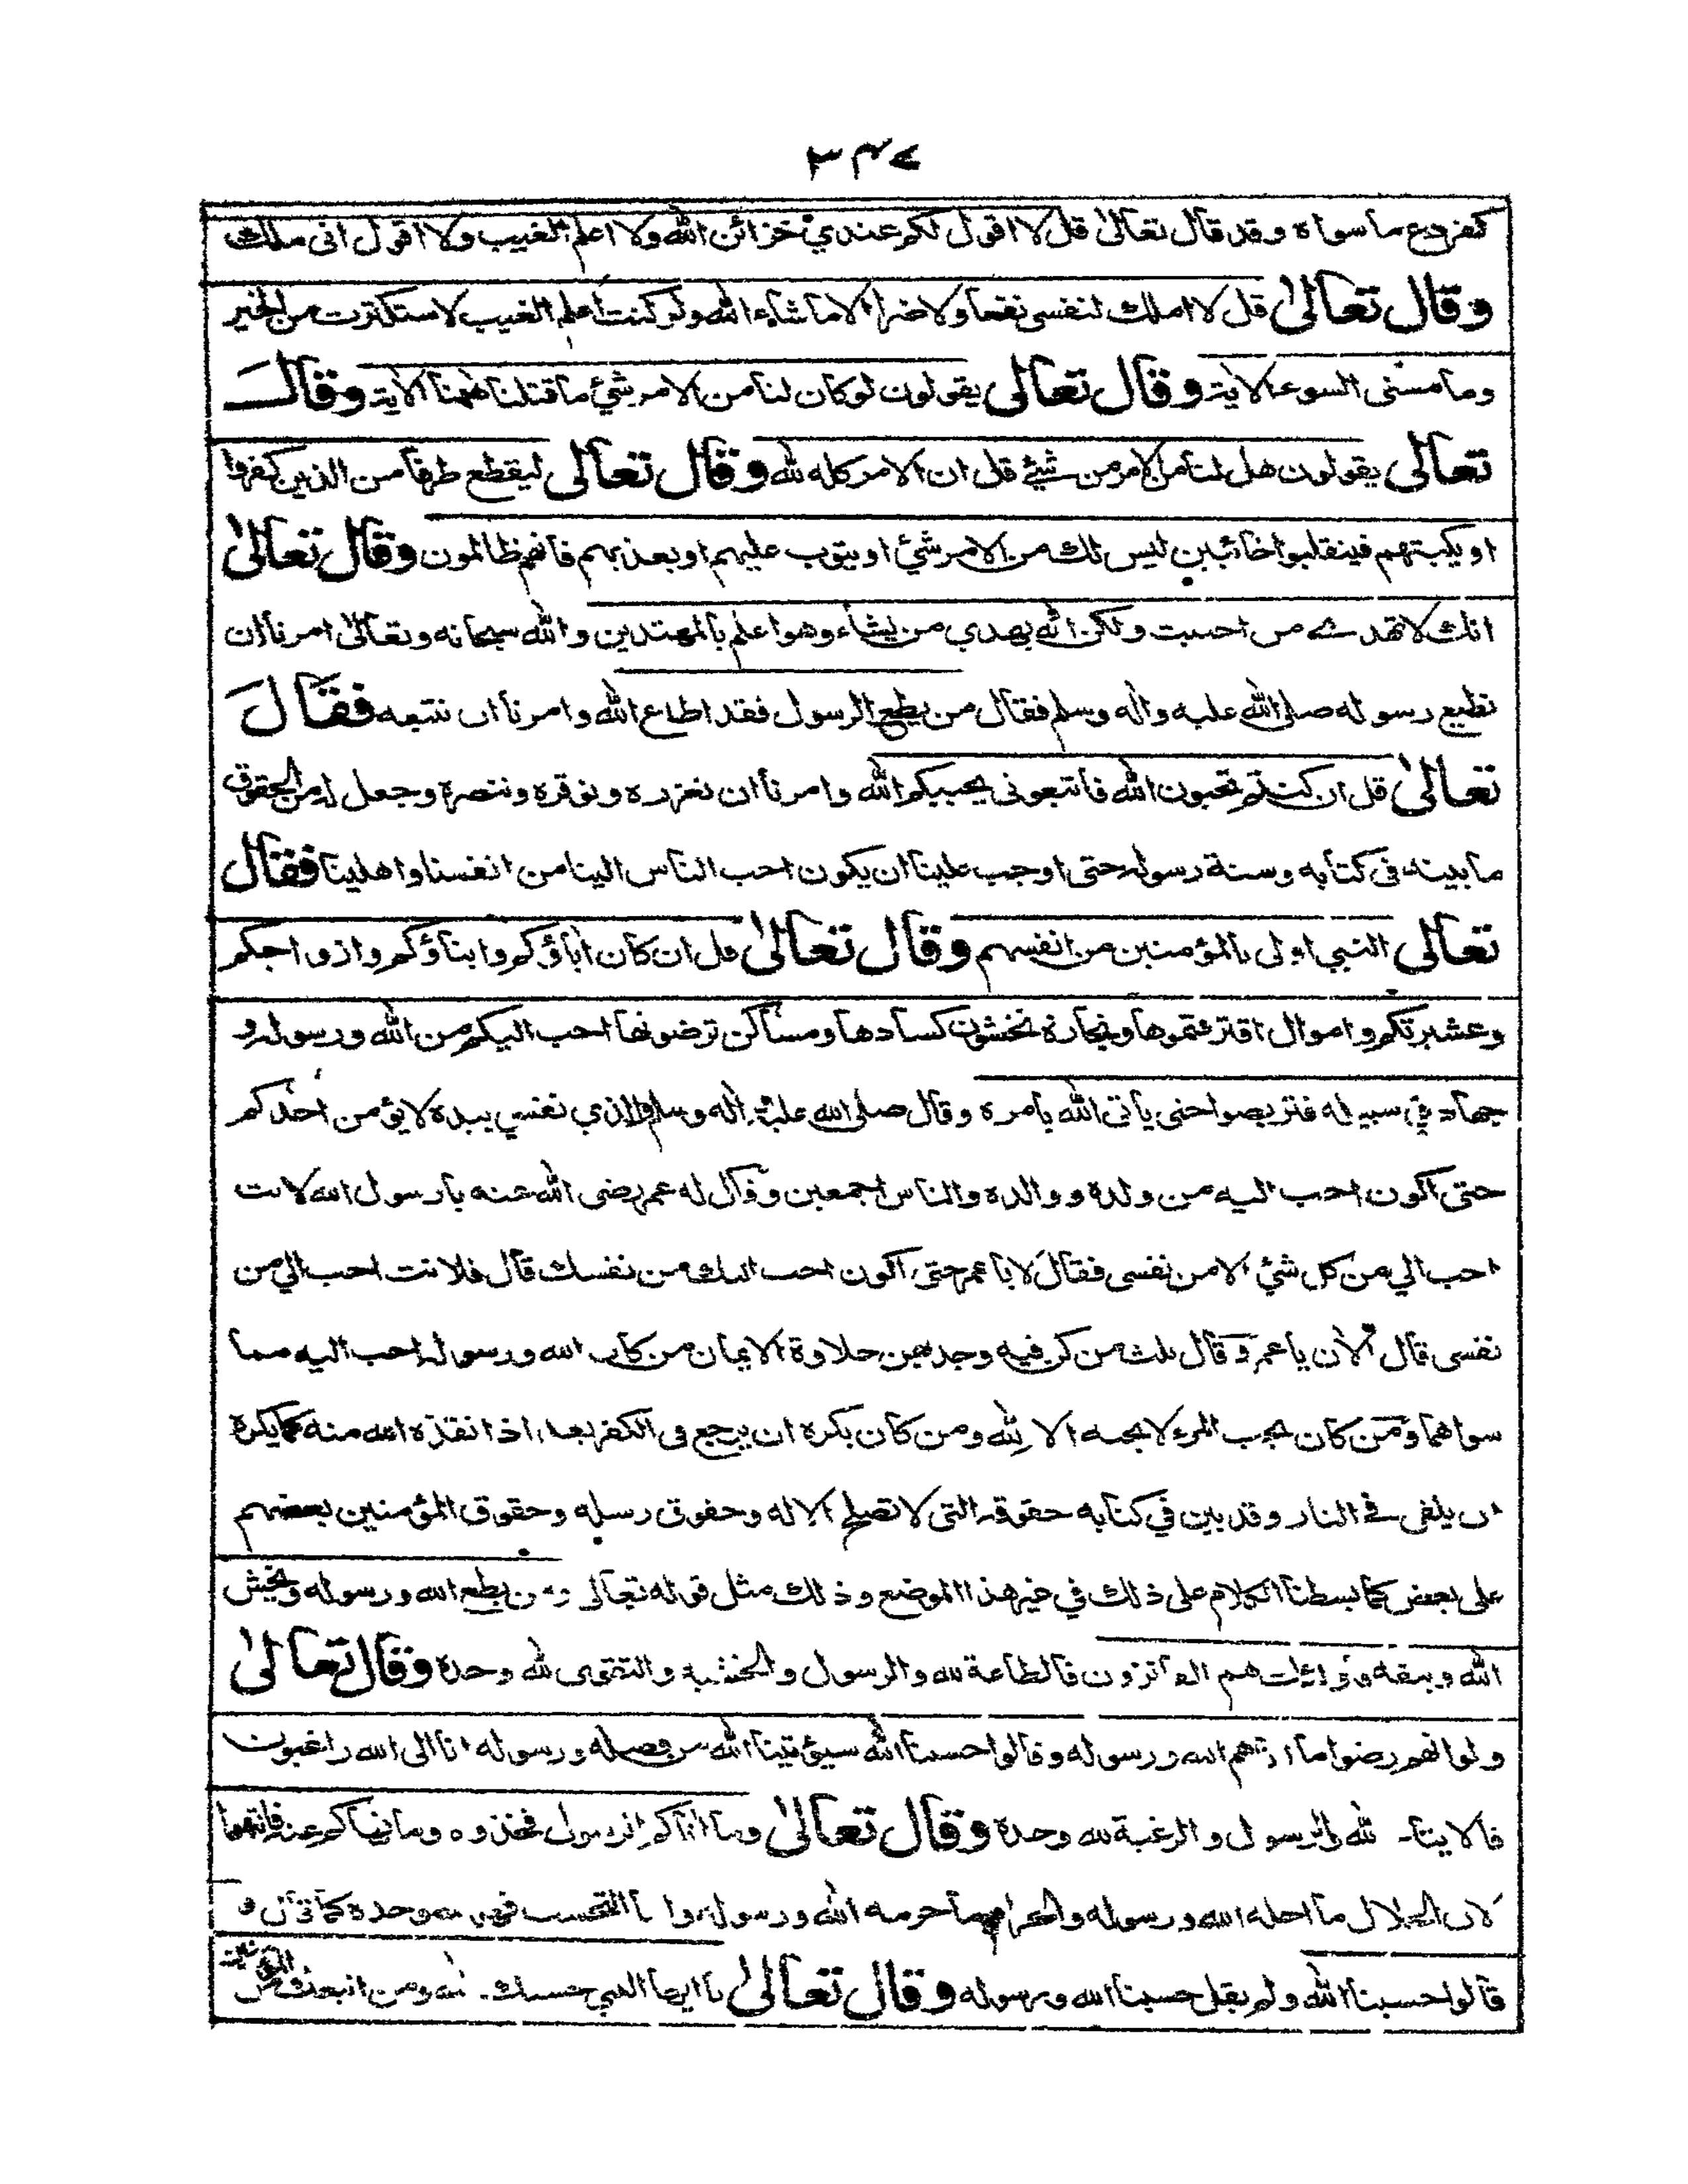 ٣٤٧
كفر دع ما سواه وقد قال تعالى قل لا اقول لكم عندي خزائن الله ولا اعلم الغيب ولا اقول انى ملك
وقال تعالىٰ قل لا املك لنفسى نفعا ولا ضرا الا ما شاء الله ولو كنت اعلم الغيب لاستكثرت من الخير
وما مسنى السوء الاية وقال تعالى يقولون لو كان لنا من الامر شيئ ما قتلنا ههنا الاية وقال
تعالى يقولون هل لنا من الامر من شيئ قل ان الامر كله لله وقال تعالى ليقطع طرفا من الذين كفروا
او يكبتهم فينقلبوا خائبين ليس لك من الامر شيئ او يتوب عليهم او يعذبهم فانهم ظالمون وقال تعالىٰ
انك لا تهدے من احببت ولكن الله يهدي من يشاء وهو اعلم بالمهتدين والله سبحانه وتعالىٰ امرنا ان
نطيع رسوله صلى الله عليه واله وسلم فقال من يطع الرسول فقد اطاع الله وامرنا ان نتبعه فقال
تعالىٰ قل ان كنتم تحبون الله فاتبعونى يحببكم الله وامرنا ان نعزره ونوقره وننصره وجعل له من الحقوق
ما بينه فى كتابه وسنة رسوله حتى اوجب علينا ان يكون احب الناس الينا من انفسنا واهلينا فقال
تعالى النبي اولى بالمؤمنين من انفسهم وقال تعالىٰ قل ان كان اباؤكم وابناؤكم وازواجكم
وعشيرتكم واموال اقترفتموها وتجارة تخشون كسادها ومساكن ترضونها احب اليكم من الله ورسوله و
جهاد في سبيله فتربصوا حتى يأتى الله بامره وقال صلى الله عليه واله وسلم والذي نفسي بيده لا يؤمن احدكم
حتى اكون احب اليه من ولده ووالده والناس اجمعين وقال له عمر رضى الله عنه يا رسول الله لانت
احب الي من كل شيئ الا من نفسى فقال لا يا عمر حتى اكون احب اليك من نفسك قال فلانت احب الي من
نفسى قال الان يا عمر وقال ثلث من كن فيه وجد بهن حلاوة الايمان من كان الله ورسوله احب اليه مما
سواهما ومن كان يحب المرء لا يحبه الا لله ومن كان يكره ان يرجع فى الكفر بعد اذ انقذه الله منه كما يكره
ان يلقى فے النار وقد بين في كتابه حقوقه التى لا تصلح الا له وحقوق رسله وحقوق المؤمنين بعضهم
على بعض كما بسطنا الكلام على ذلك في غير هذا الموضع وذلك مثل قوله تعالى ومن يطع الله ورسوله ويخش
الله ويتقه فاولئك هم الفائزون فالطاعة لله والرسول والخشية والتقوى لله وحده وقال تعالىٰ
ولو انهم رضوا ما اتهم الله ورسوله وقالوا حسبنا الله سيؤتينا الله من فضله ورسوله انا الى الله راغبون
فالايتاء لله والرسول والرغبة لله وحده وقال تعالىٰ وما اتاكم الرسول فخذوه وما نهاكم عنه فانتهوا
لان الحلال ما احله الله ورسوله والحرام ما حرمه الله ورسوله واما التحسب فهو لله وحده كما قال و
قالوا حسبنا الله ولم يقل حسبنا الله ورسوله وقال تعالىٰ يا ايها النبي حسبك الله ومن اتبعك من المؤمنين